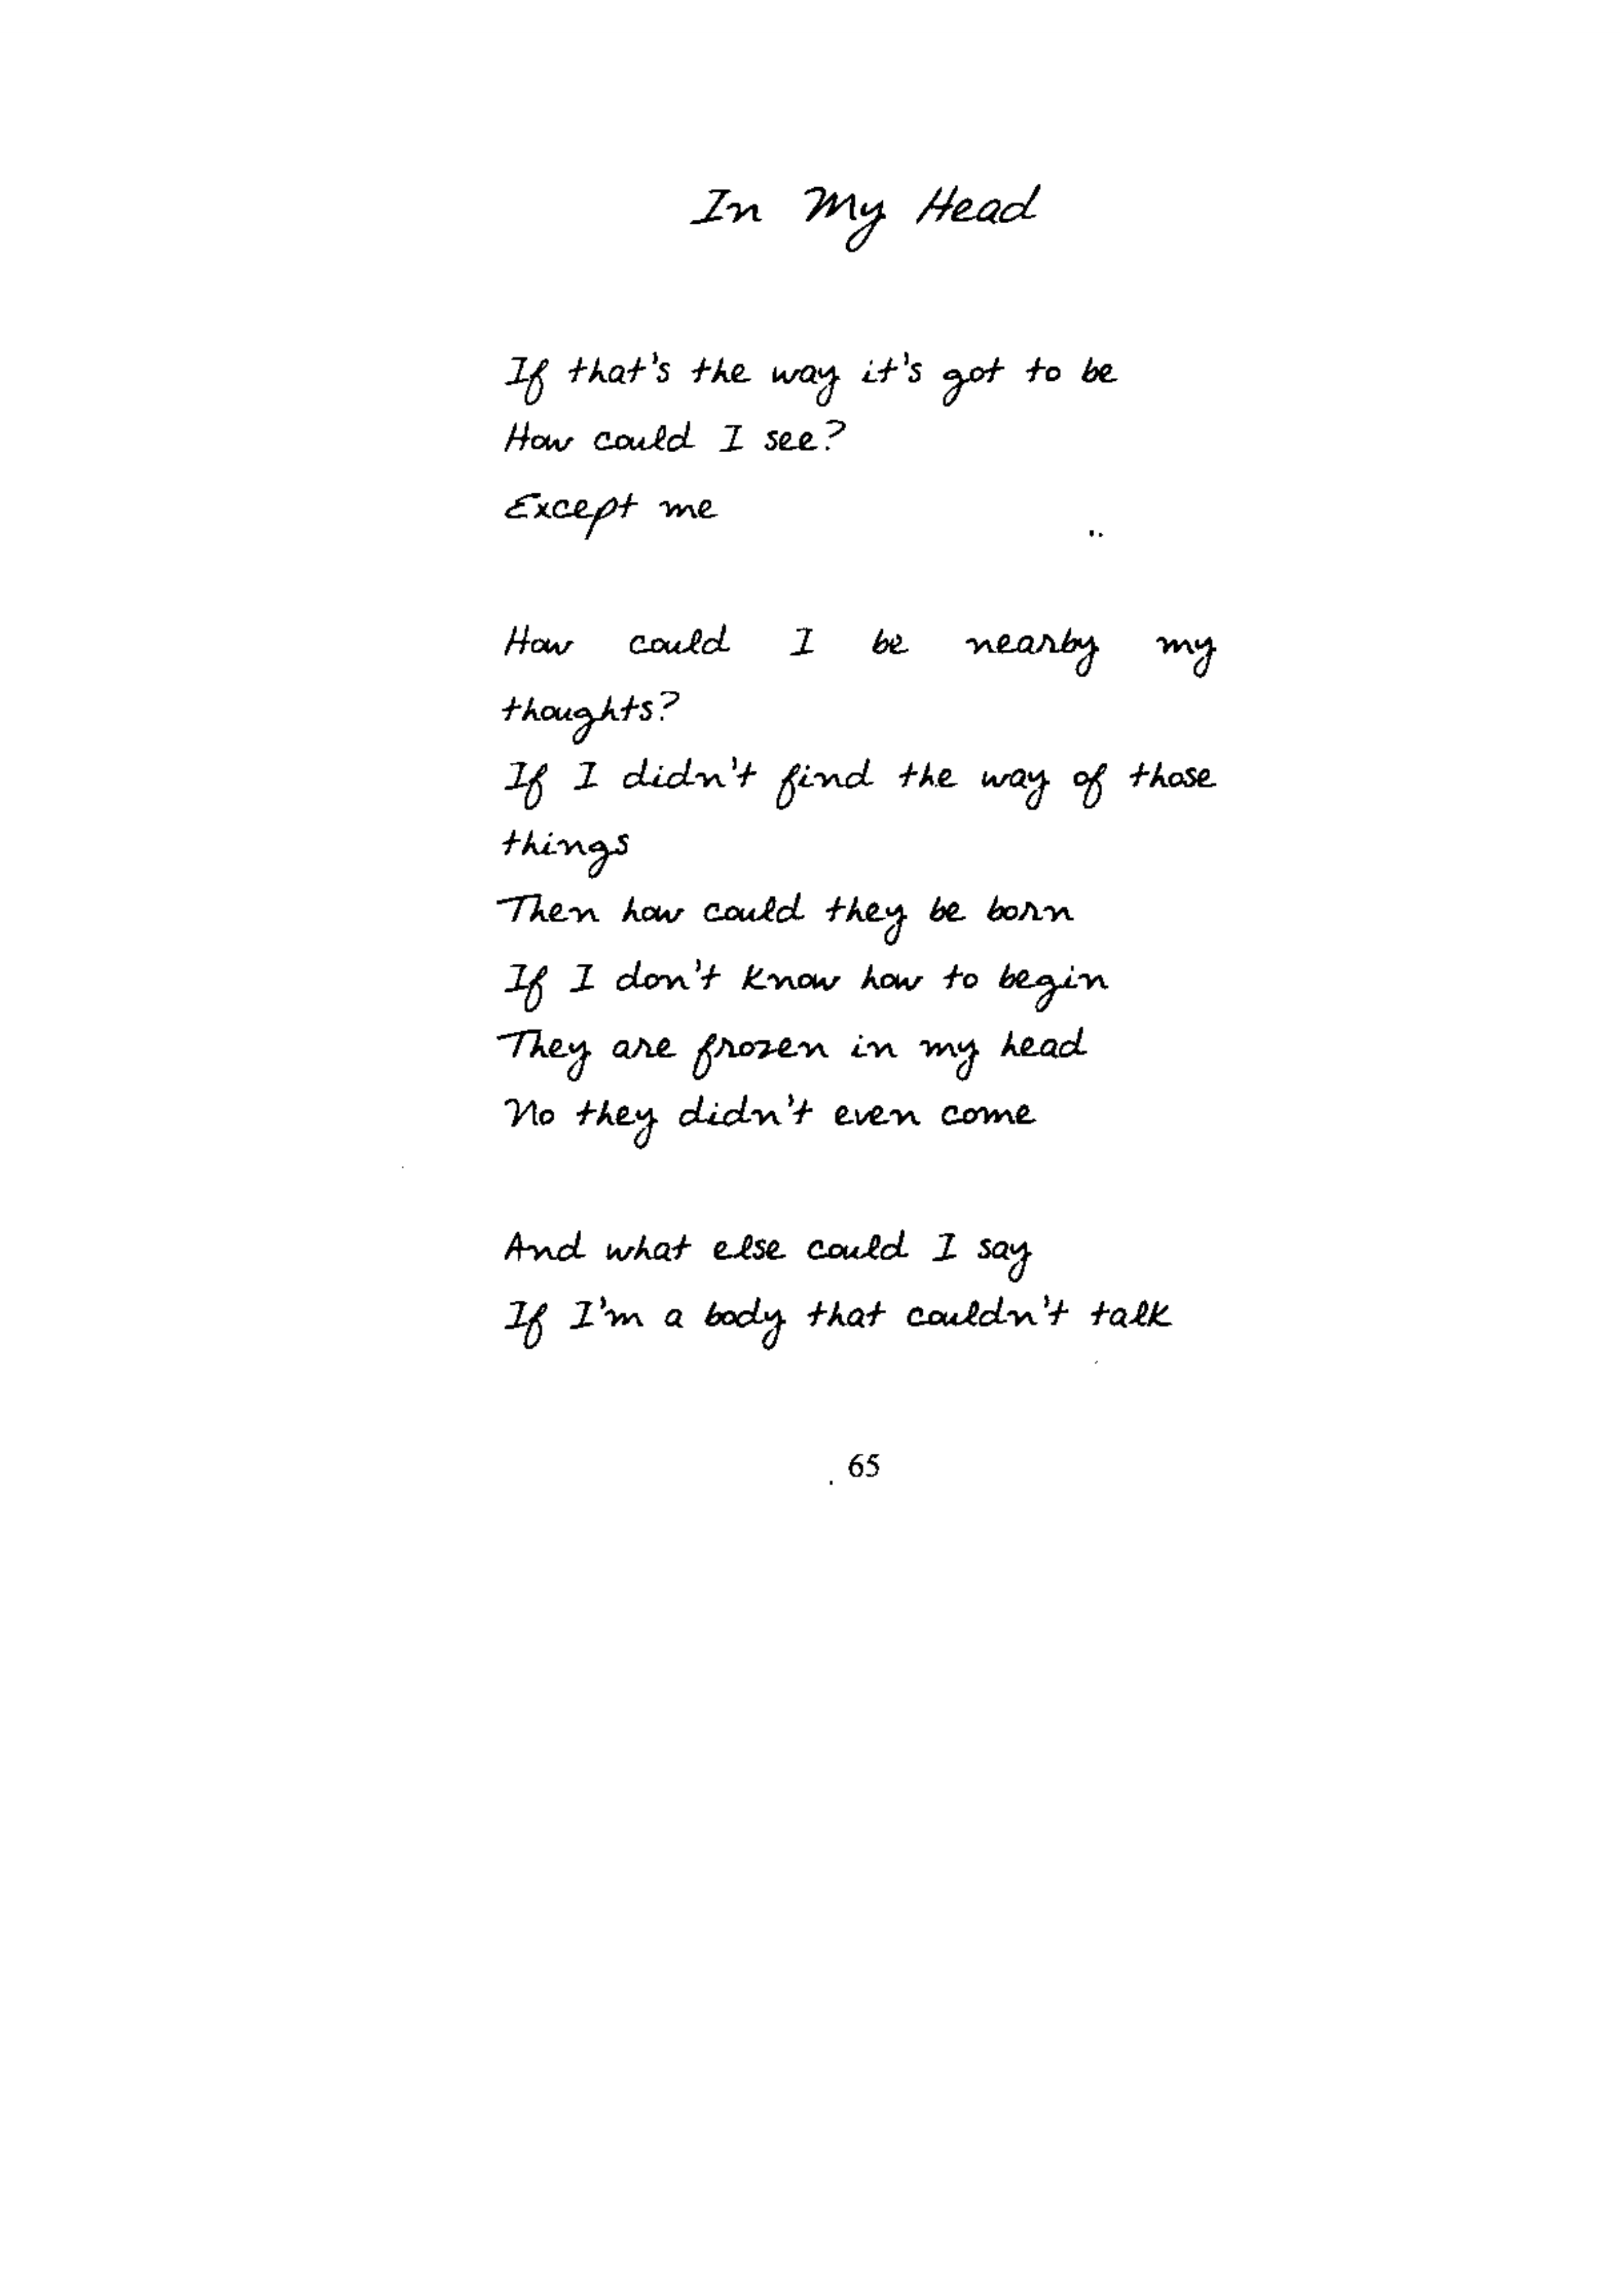 In My Head
If that's the way it's got to be
How could I see?
Except me
How could I be nearby my
thoughts?
If I didn't find the way of those
things
Then how could they be born
If I don't know how to begin
They are frozen in my head
No they didn't even come
And what else could I say
If I'm a body that couldn't talk
65